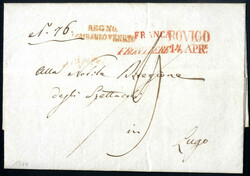 N. 76.
REGNO
LOMBARDO VENETO
FRANCA
ROVIGO
14 APR.
Alla Nobile Direzione
degli Spettacoli
in
Lugo